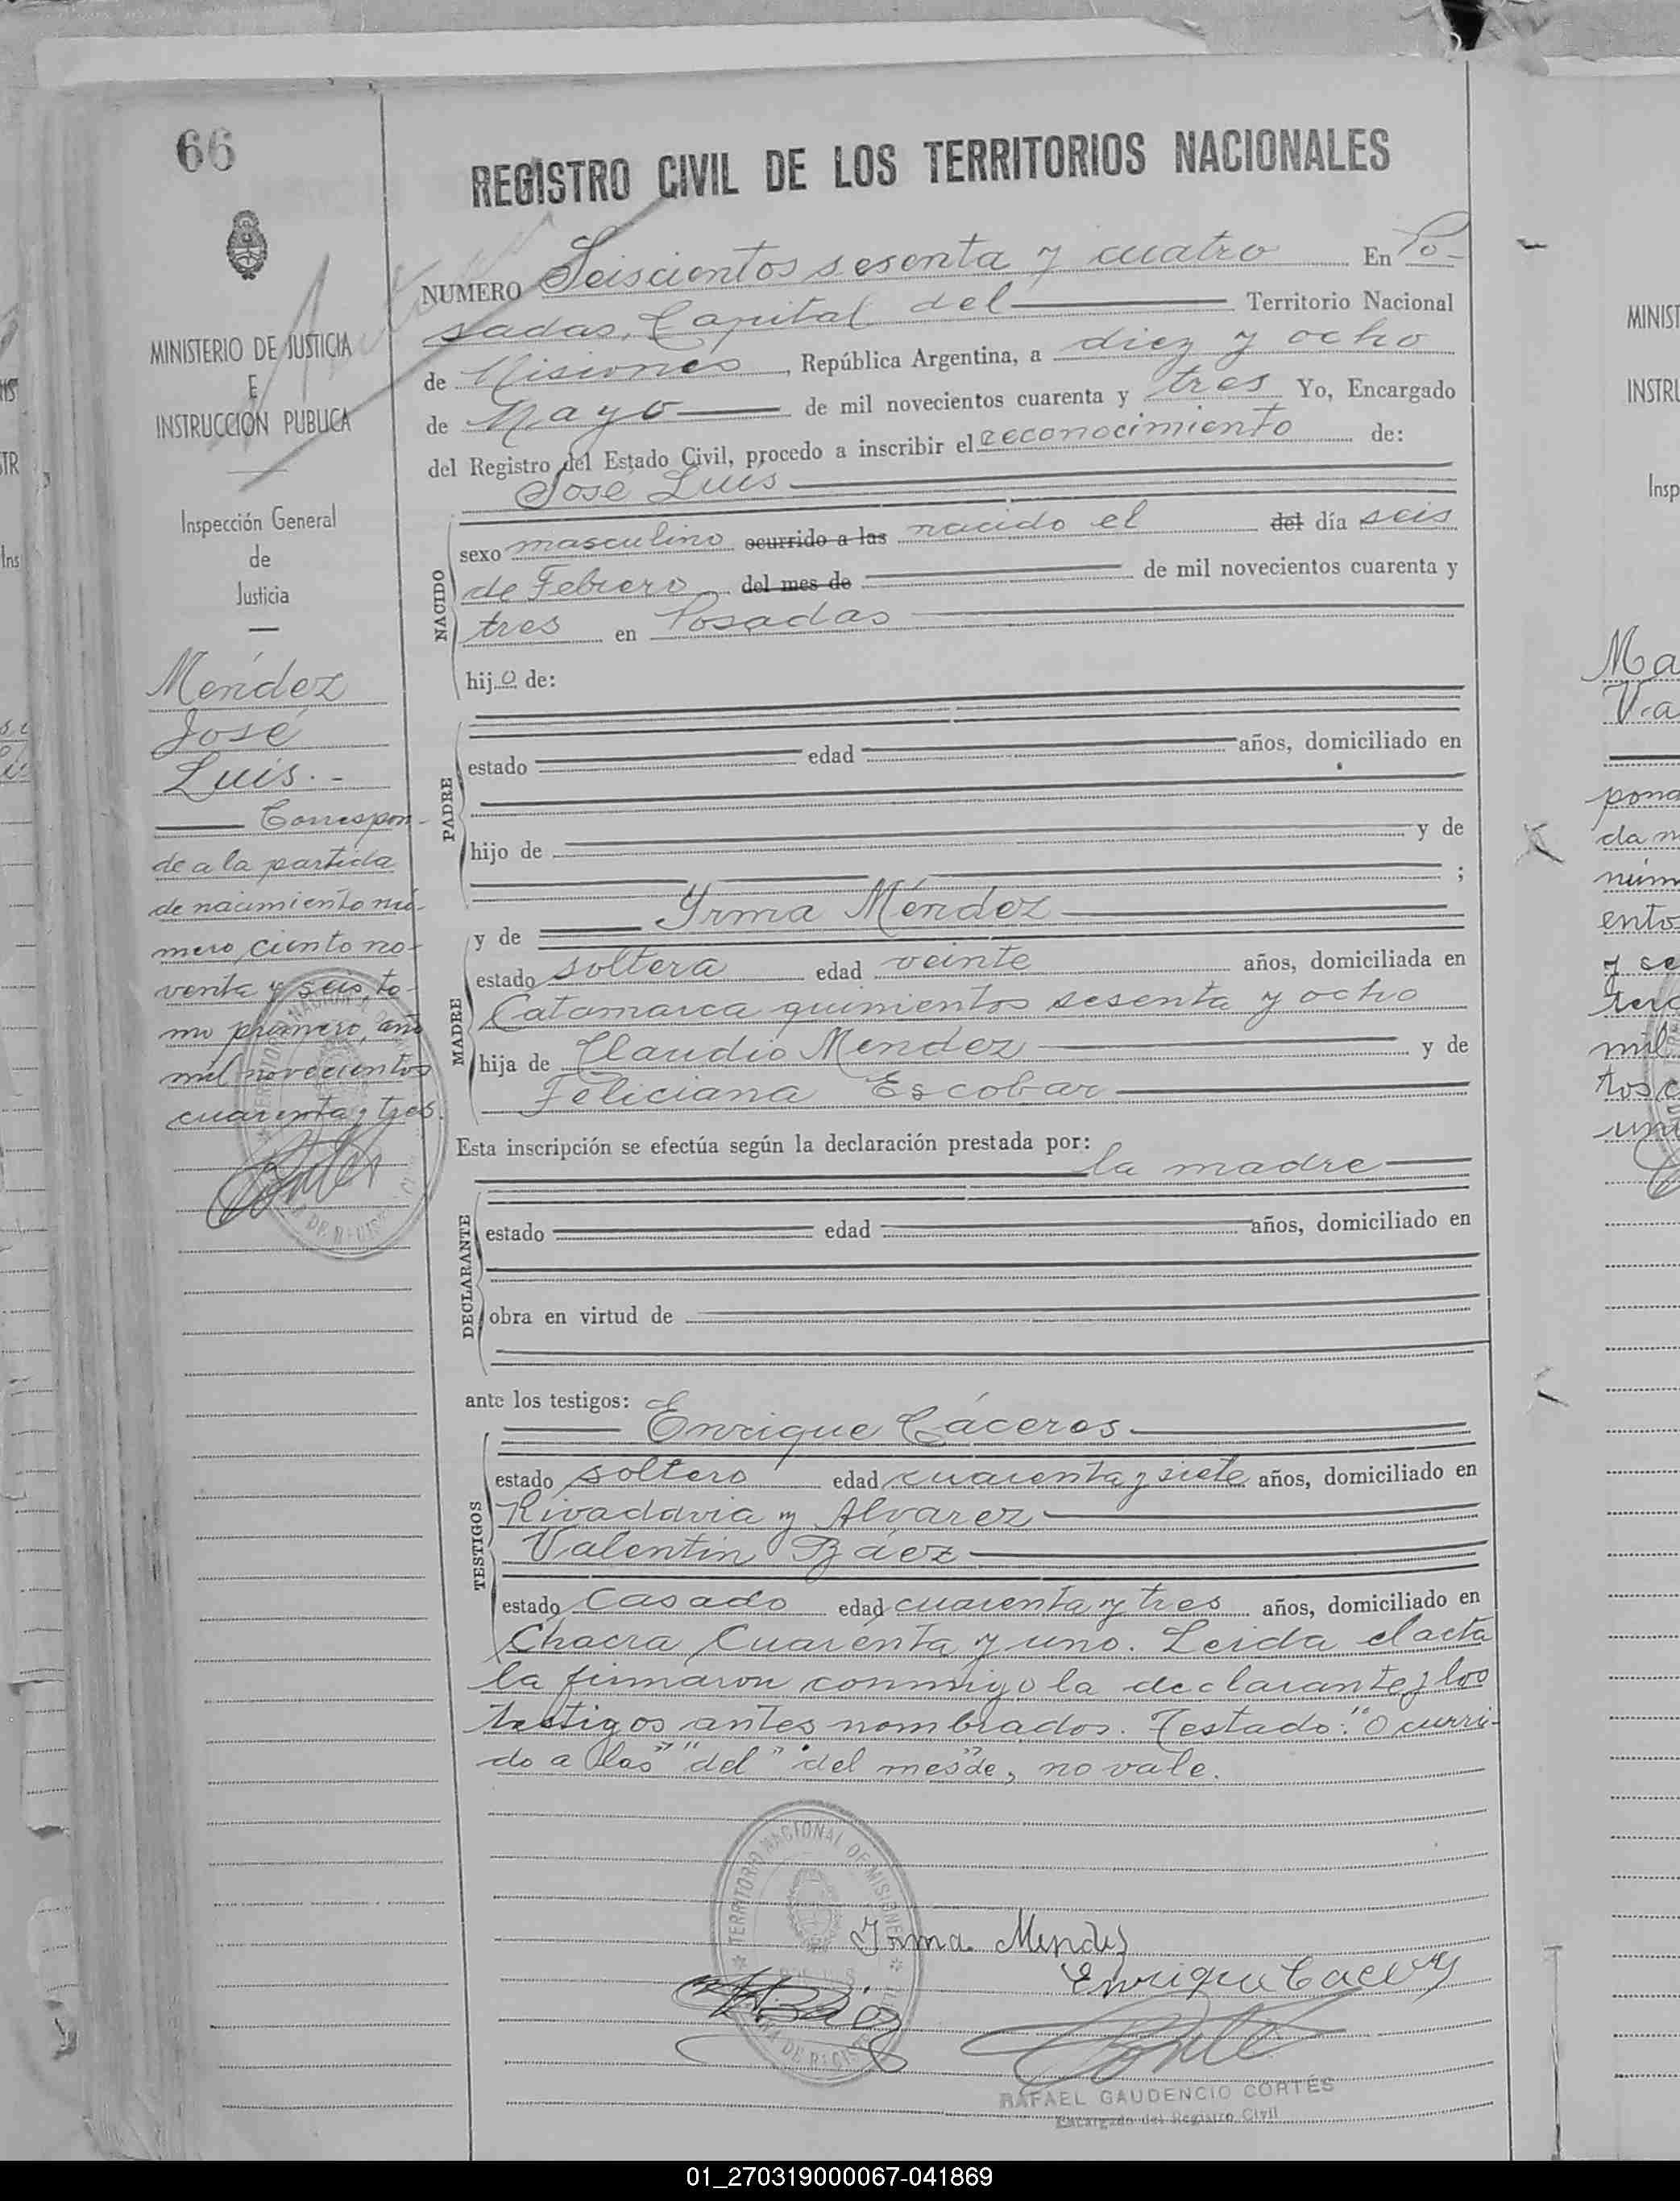 66
REGISTRO CIVIL DE LOS TERRITORIOS NACIONALES
NUMERO Seiscientos sesenta y cuatro En Po-
sadas, Capital del Territorio Nacional
de Misiones, República Argentina, a diez y ocho
de Mayo de mil novecientos cuarenta y tres Yo, Encargado
del Registro del Estado Civil, procedo a inscribir el reconocimiento de:
José Luis
NACIDO
sexo masculino ocurrido a las nacido el del día seis
de Febrero del mes de de mil novecientos cuarenta y
tres en Posadas
hijo de:
PADRE
estado edad años, domiciliado en
hijo de y de
;
MADRE
y de Yrma Méndez
estado soltera edad veinte años, domiciliada en
Catamarca quinientos sesenta y ocho
hija de Claudio Mendez y de
Feliciana Escobar
Esta inscripción se efectúa según la declaración prestada por:
la madre
DECLARANTE
estado edad años, domiciliado en
obra en virtud de
ante los testigos:
Enrique Cáceres
TESTIGOS
estado soltero edad cuarenta y siete años, domiciliado en
Rivadavia y Alvarez
Valentin Báez
estado Casado edad cuarenta y tres años, domiciliado en
Chacra Cuarenta y uno. Leida el acta
la firmaron conmigo la declarante y los
testigos antes nombrados. Testado: "Ocurri-
do a las" "del" "del mes de", no vale.
TERRITORIO NACIONAL DE MISIONES
Irma Mendez
Enrique Caceres
RAFAEL GAUDENCIO CORTÉS
Encargado del Registro Civil
MINISTERIO DE JUSTICIA
E
INSTRUCCION PUBLICA
Inspección General
de
Justicia
Méndez
José
Luis.-
Correspon-
de a la partida
de nacimiento nú-
mero, ciento no-
venta y seis, to-
mo primero, año
mil novecientos
cuarenta y tres.
MINIST
INSTRU
Insp
Ma
pond
da n
núm
ento
y se
terc
mil
tos c
un
01_270319000067-041869